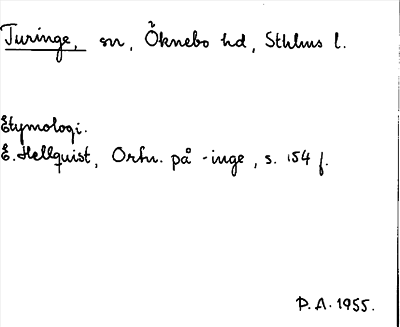 Turinge, sn, Öknebo hd, Sthlms l.
Etymologi.
E. Hellquist, Ortn. på -inge, s. 154 f.
P.A. 1955.